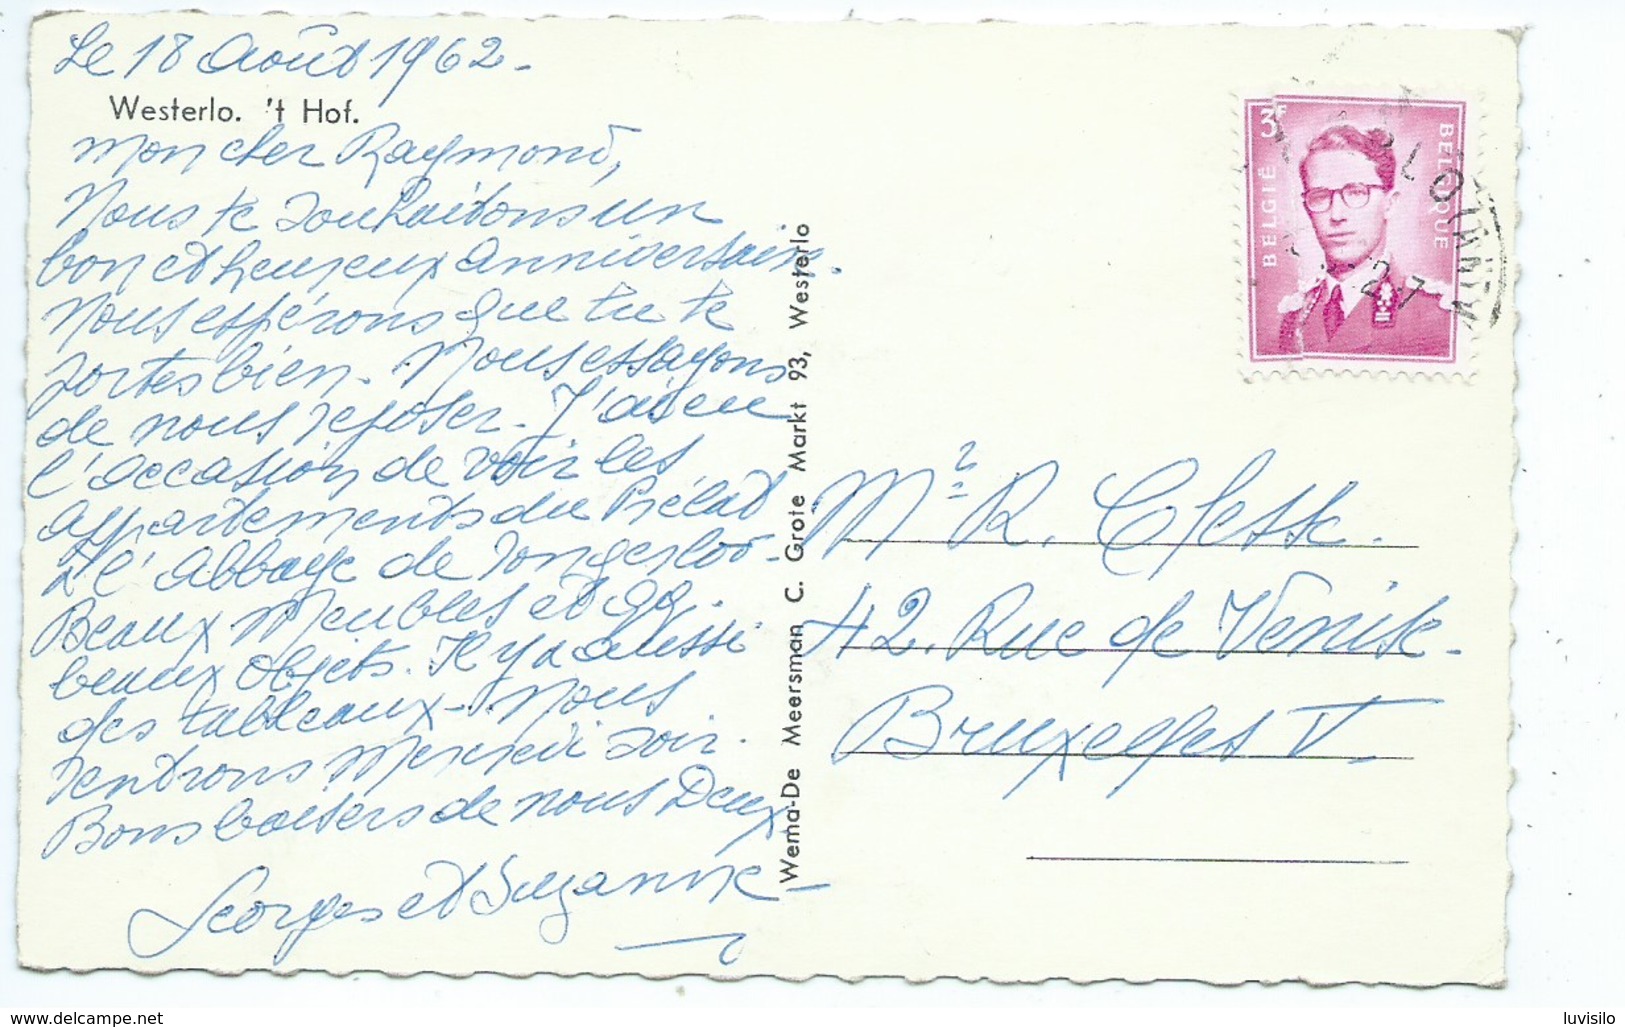 Le 18 Août 1962 -
Westerlo. 't Hof.
Mon cher Raymond,
Nous te souhaitons un
bon et heureux anniversaire.
Nous espérons que tu te
portes bien. Nous essayons
de nous reposer. J'ai eu
l'occasion de voir les
appartements du Prélat
de l'Abbaye de Tongerloo -
Beaux Meubles et qq.
beaux objets. Il y a aussi
des tableaux - Nous
rentrons mercredi soir.
Bons baisers de nous Deux,
Georges et Suzanne -
Wema-De Meersman C. Grote Markt 93, Westerlo
3F
BELGIË
BELGIQUE
27
Mr R.
42. Rue de Venise -
Bruxelles V
www.delcampe.net
luvisilo